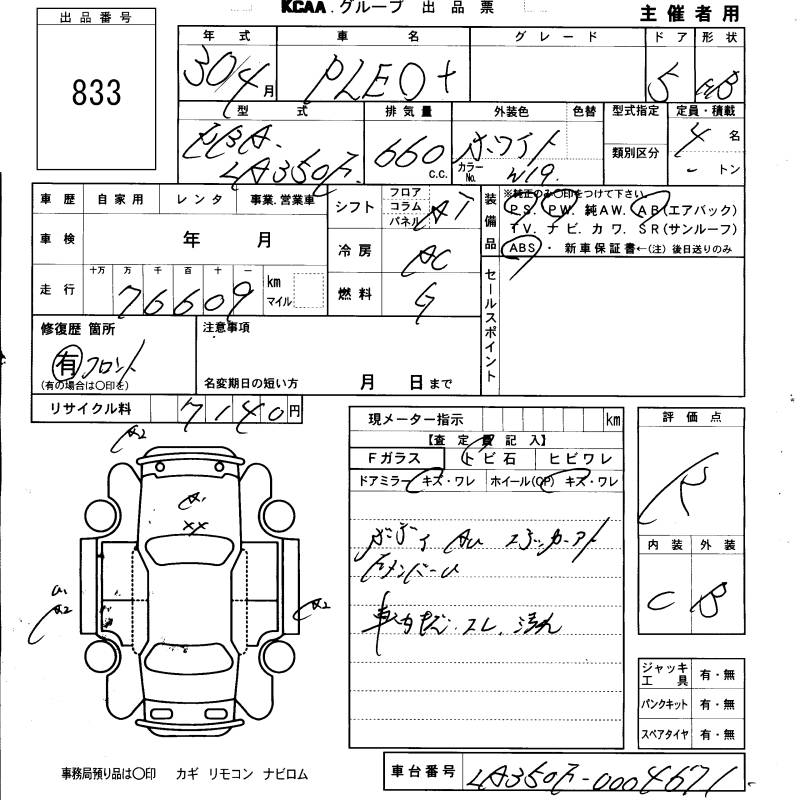 KCAA.グループ 出品票
主催者用
出品番号
833
年式 車名 グレード ドア 形状
30/4月 PLEO+ 5 HB
型式 排気量 外装色 色替 型式指定 定員・積載
EBA- 660 c.c. ホワイト 4 名
LA350F カラーNo. W19 類別区分 - トン
車歴 自家用 レンタ 事業.営業車
シフト フロア コラム パネル AT
装備品 ※純正のみ〇印をつけて下さい。
P S. P W. 純AW. A B (エアバック)
T V. ナ ビ. カ ワ. S R (サンルーフ)
ABS ・ 新車保証書←(注) 後日送りのみ
車検 年 月
冷房 AC
走行 十万 万 千 百 十 一 km マイル
76609
燃料 G
セールスポイント
修復歴 箇所 注意事項
有 フロント
(有の場合は〇印を) 名変期日の短い方 月 日まで
リサイクル料 7140円
現メーター指示 km
評価点
【査定員記入】
Fガラス トビ石 ヒビワレ
ドアミラー キズ・ワレ ホイール(CP) キズ・ワレ
R
A2
A1
XX
A1
A2
A2
内装 外装
C B
ジャッキ工具 有・無
パンクキット 有・無
スペアタイヤ 有・無
事務局預り品は〇印 カギ リモコン ナビロム
車台番号 LA350F-0004671